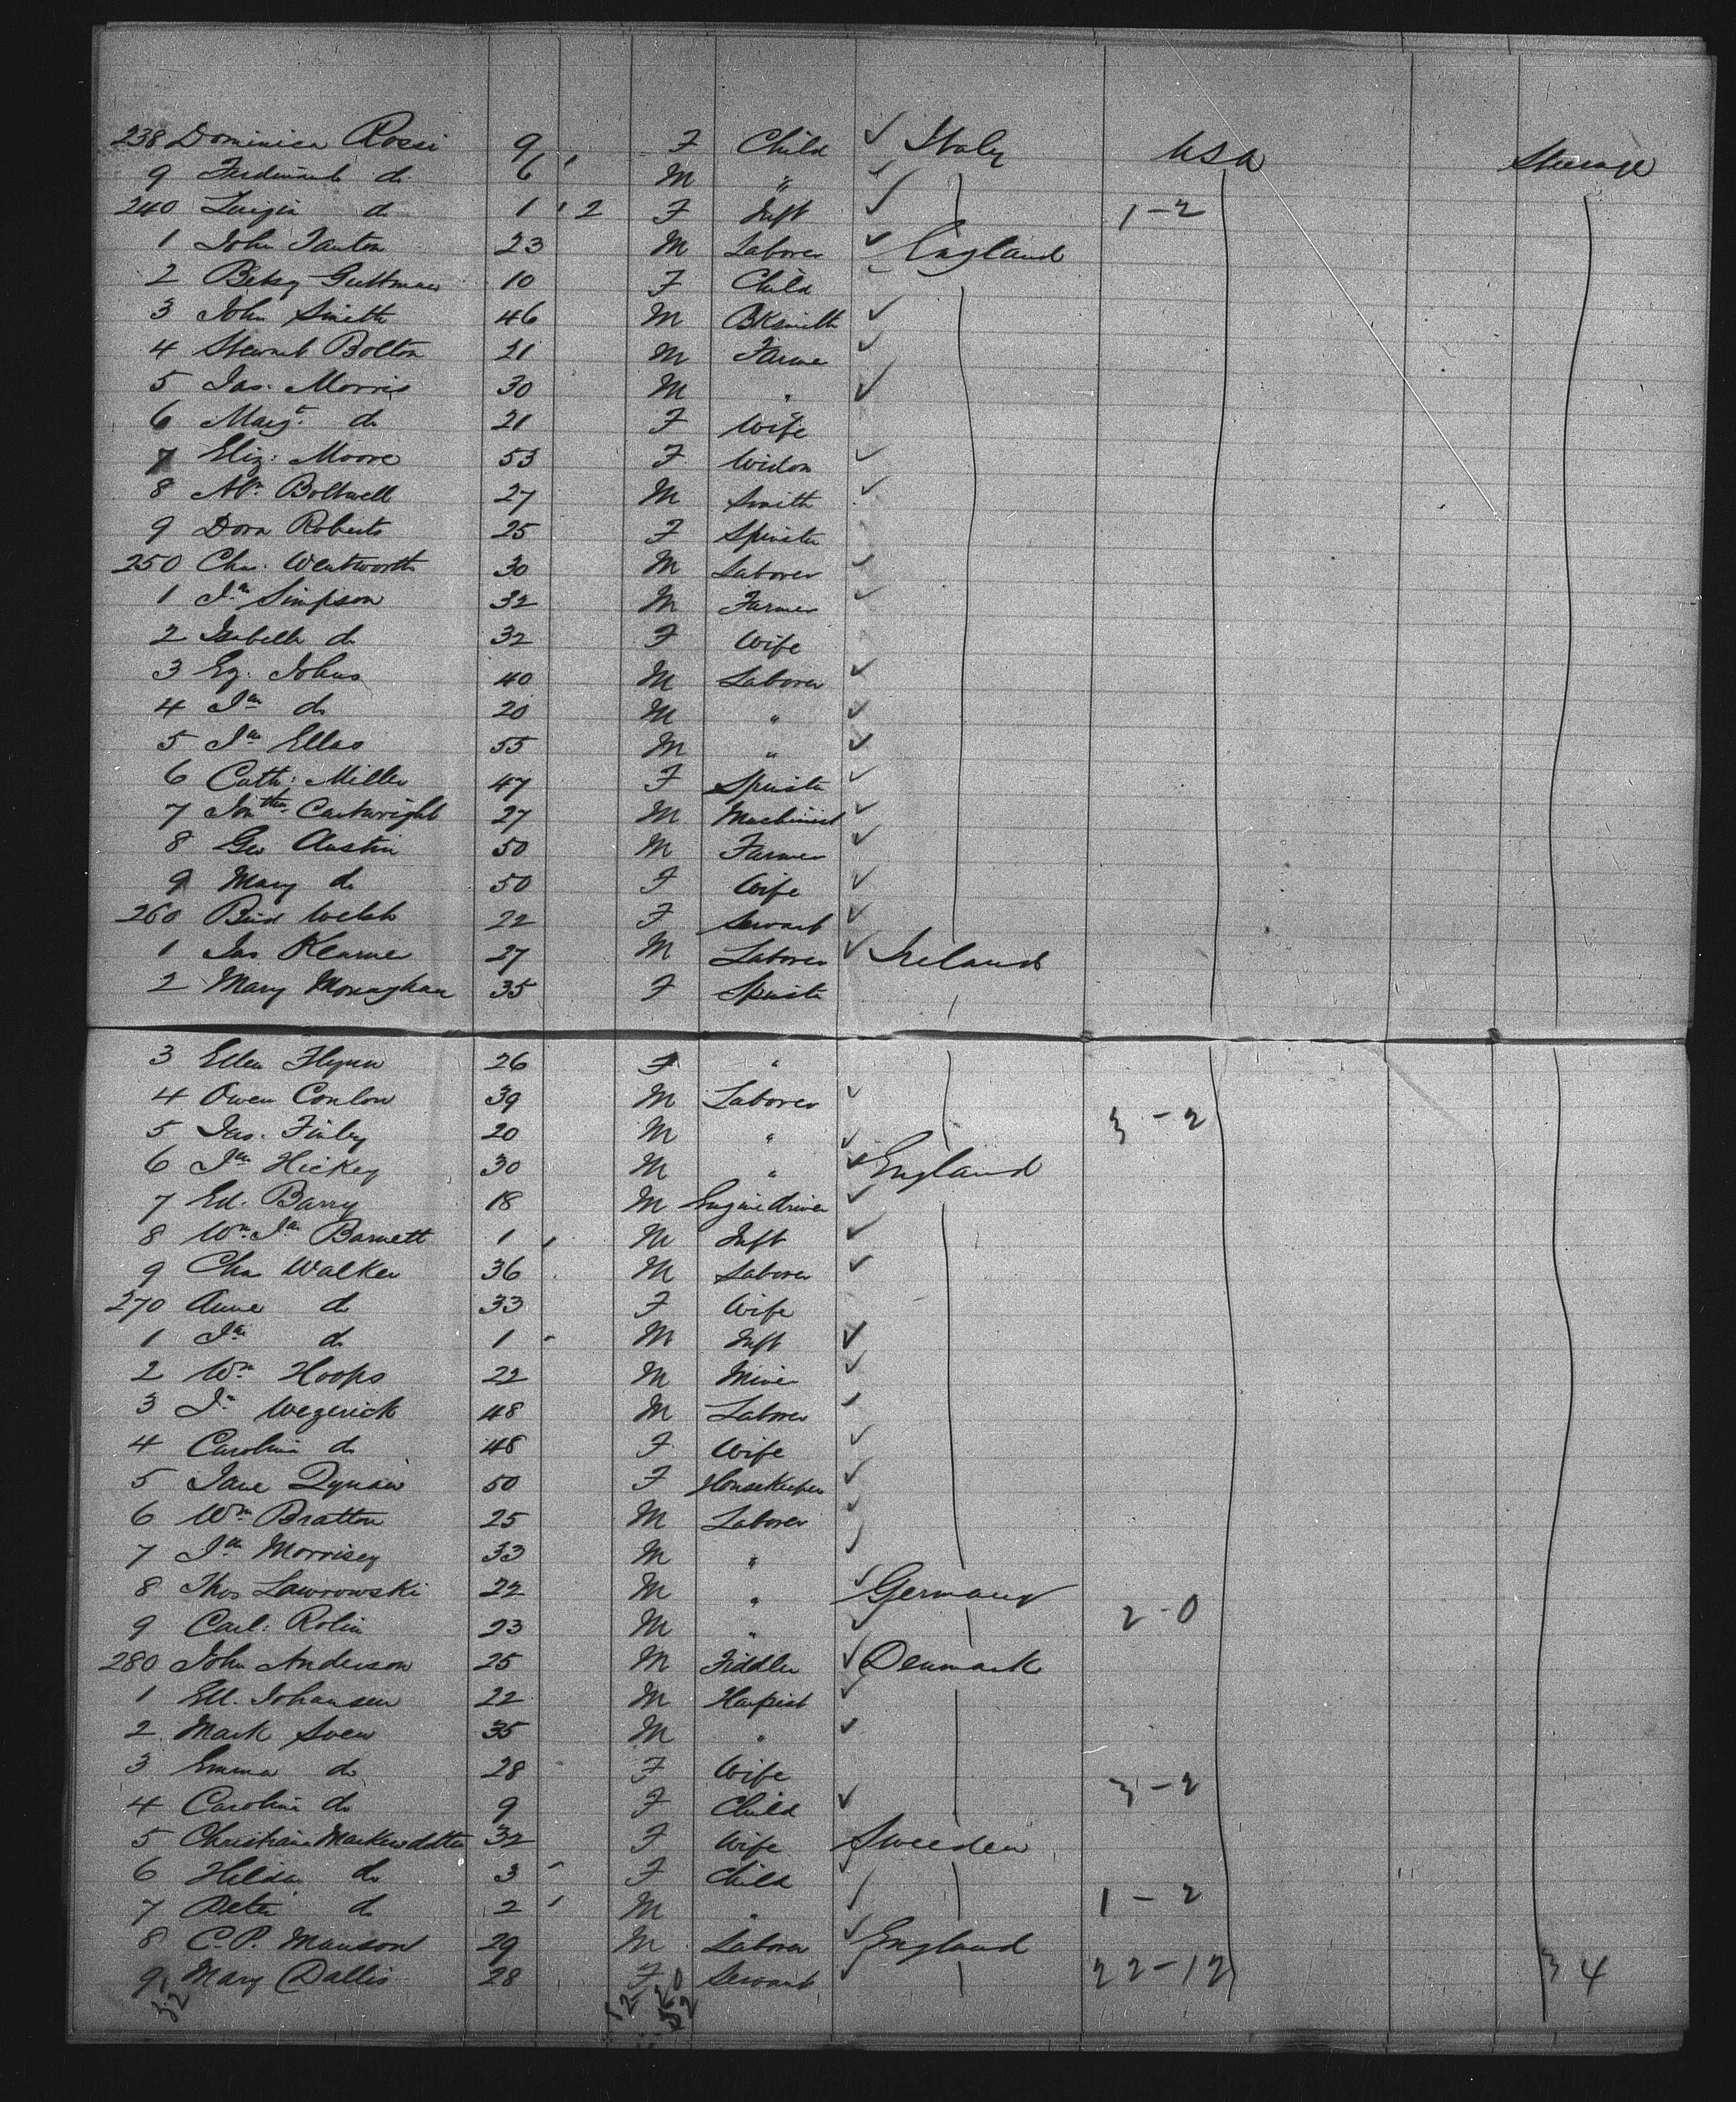 238 Dominica Rossi 9 F Child ✓ Italy USA Steerage
9 Ferdinando do 6 M " ✓
240 Luigia do 1 2 F Inft ✓ 1-2
1 John Tanton 23 M Laborer ✓ England
2 Betsy Guttman 10 F Child
3 John Smith 46 M Bksmith ✓
4 Stewart Bolton 21 M Farmer ✓
5 Jas. Morris 30 M " ✓
6 Margt. do 21 F Wife
7 Eliz: Moore 53 F Widow ✓
8 Boltwell 27 M Smith ✓
9 Dora Roberts 25 F Spinster
250 Chas. Wentworth 30 M Laborer ✓
1 Jno Simpson 32 M Farmer ✓
2 Isabella do 32 F Wife
3 Johns 40 M Laborer ✓
4 Jno do 20 M " ✓
5 Jno Ellas 55 M " ✓
6 Cath: Miller 47 F Spinster ✓
7 Jonthn. Cartwright 27 M Machinist ✓
8 Geo Austin 50 M Farmer ✓
9 Mary do 50 F Wife ✓
260 Brid Welsh 22 F Servant ✓
1 Jas Kearne 27 M Laborer ✓ Ireland
2 Mary Monaghan 35 F Spinster
3 Ellen Flynn 26 F "
4 Owen Conlon 39 M Laborer ✓
5 Jas. Finley 20 M " ✓ 3-2
6 Jno Hickey 30 M " ✓ England
7 Ed. Barry 18 M Engine driver ✓
8 Wm. Jno Barnett 1 M Inft ✓
9 Chas Walker 36 M Laborer ✓
270 Anne do 33 F Wife
1 Jno do 1 M Inft ✓
2 Wm Hoops 22 M Miner ✓
3 Jno Wegerick 48 M Laborer ✓
4 Carolina do 48 F Wife ✓
5 Jane 50 F Housekeeper ✓
6 Wm Bratton 25 M Laborer ✓
7 Jno Morrisey 33 M " ✓
8 Thos Lawrowski 22 M " ✓ Germany
9 Carl: Rolin 23 M " ✓ 2-0
280 John Anderson 25 M Fiddler ✓ Denmark
1 Ell. Johansen 22 M Harpist ✓
2 Mark Sven 35 M " ✓
3 Emma do 28 F Wife
4 Carolina do 9 F Child ✓ 3-2
5 Christiana 32 F Wife Sweeden
6 Hilda do 3 F Child ✓
7 Peter do 2 M " 1-2
8 C.P. Manson 29 M Laborer ✓ England
9 Mary Dallis 28 F Servant ✓ 22-12 34
32 52 20
52